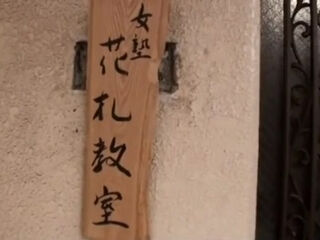 女塾
花札教室